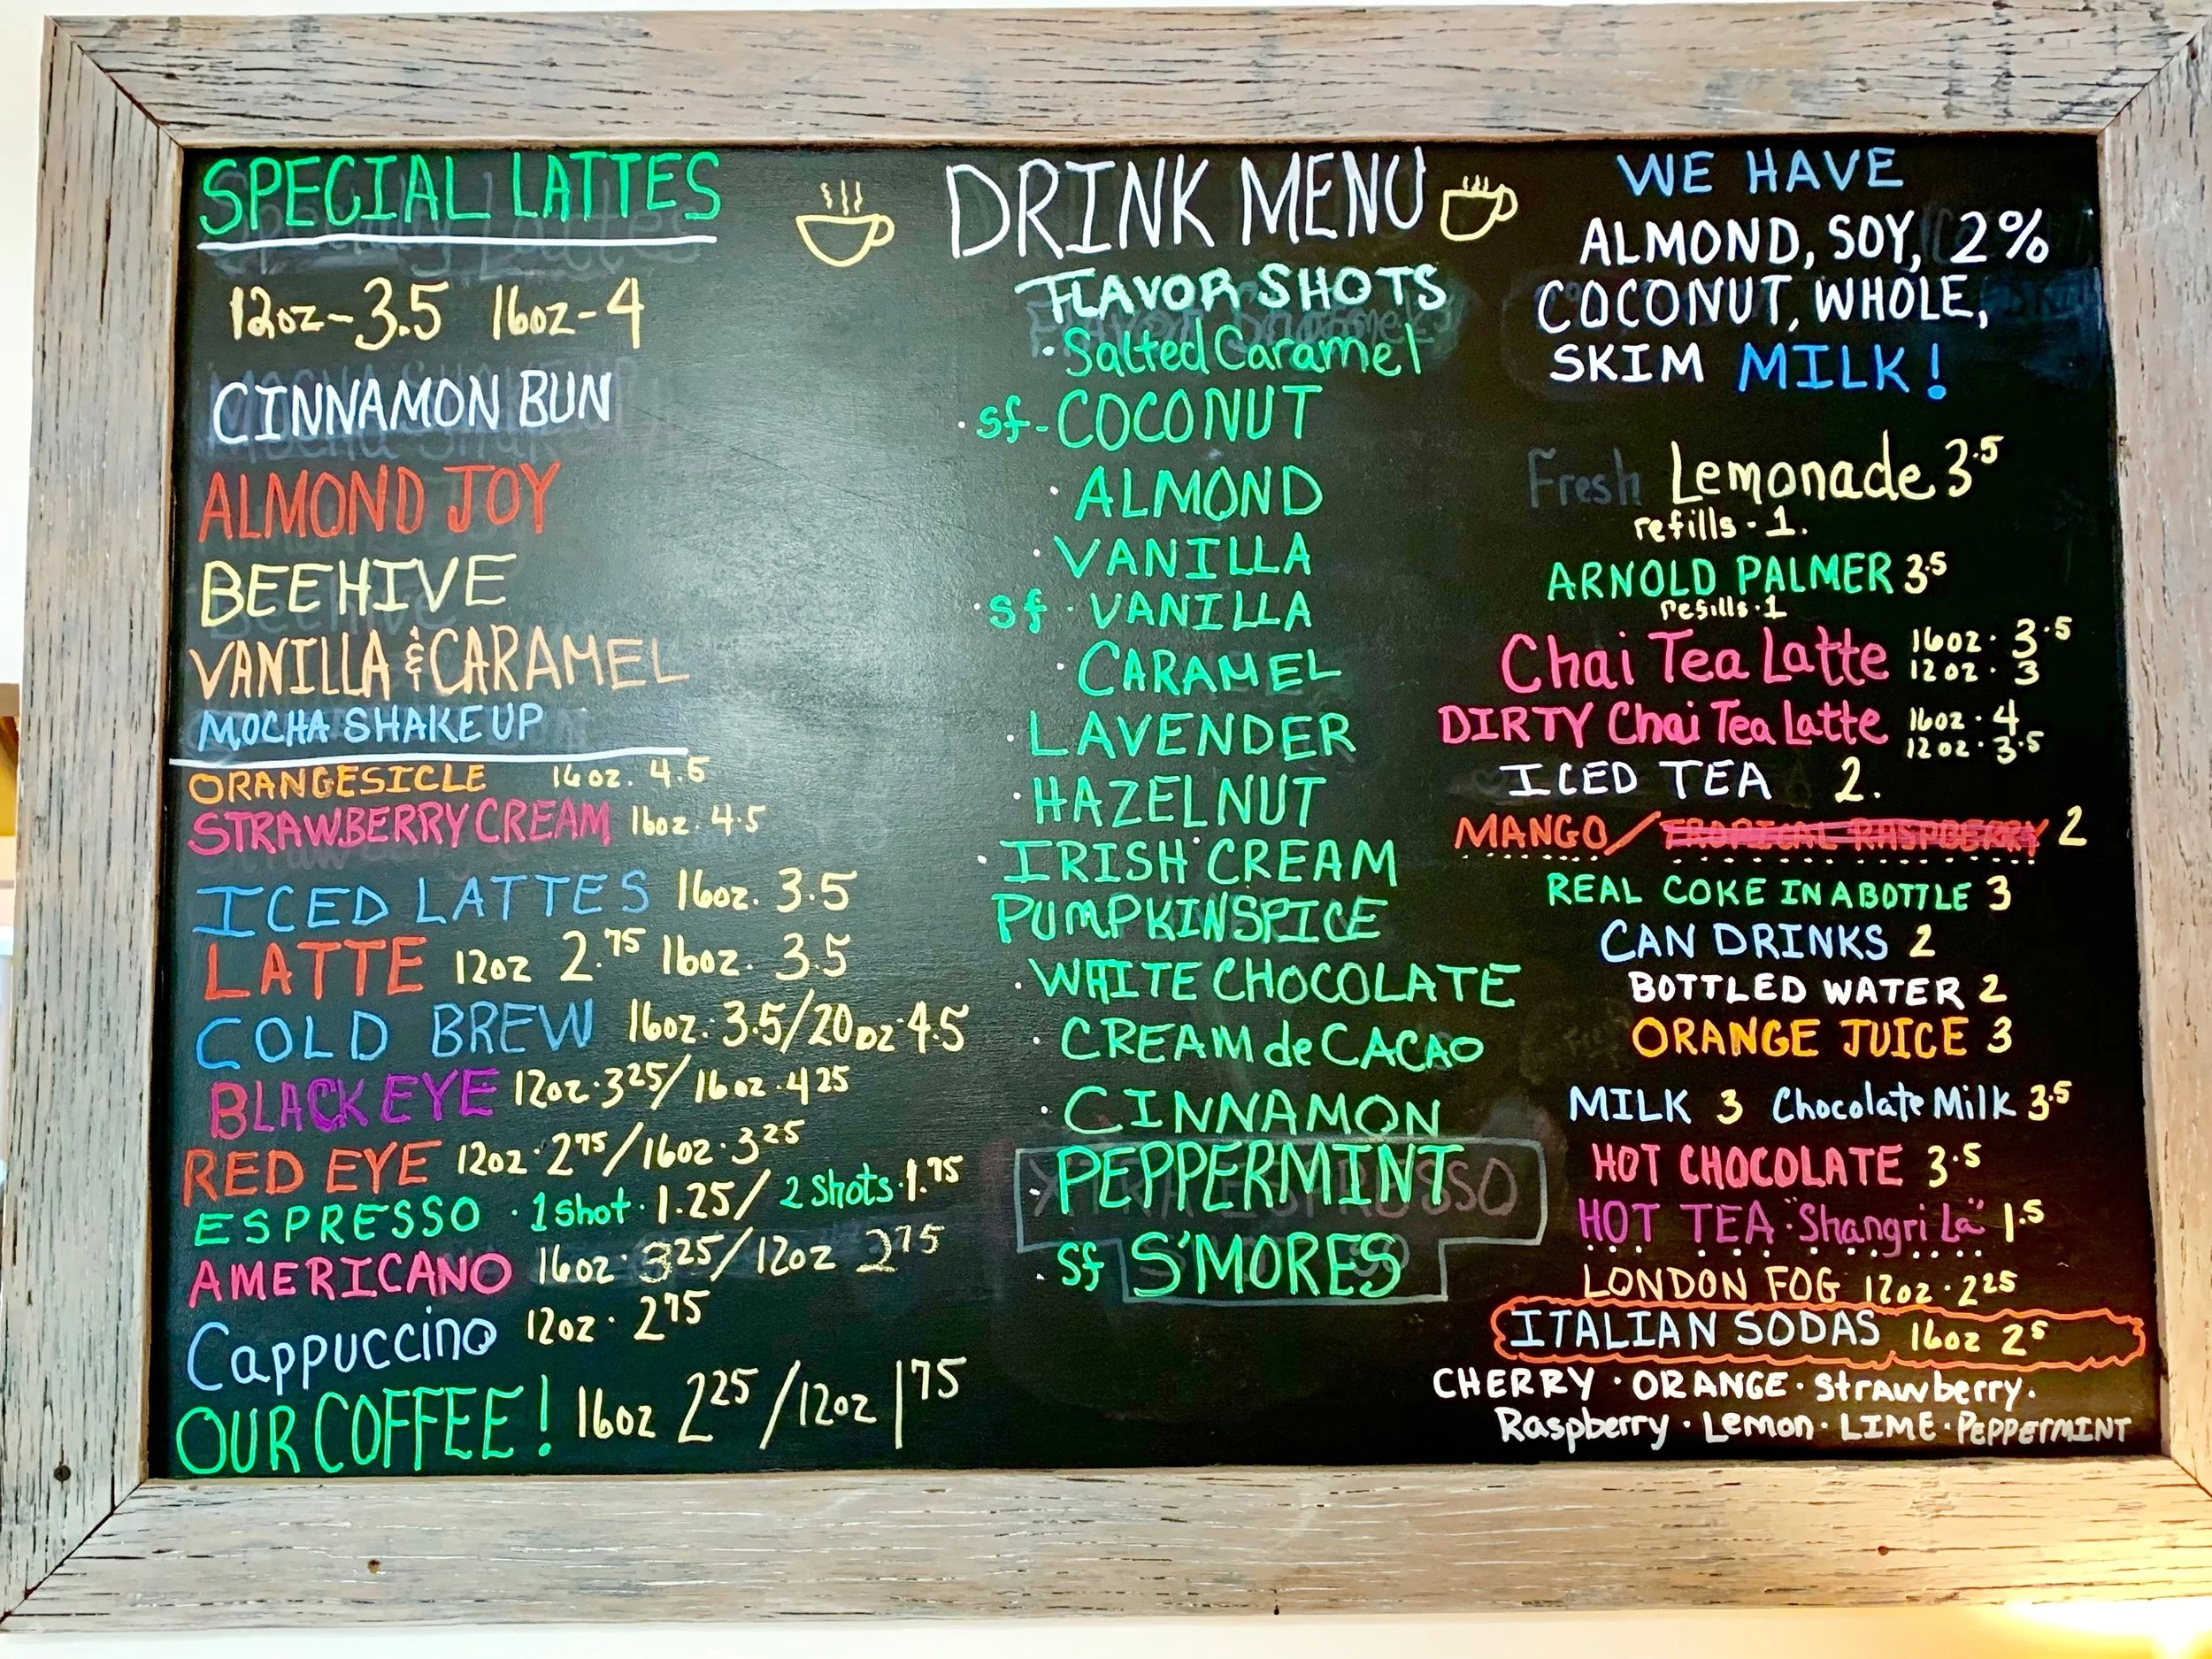 SPECIAL LATTES
12oz-3.5 16oz-4
CINNAMON BUN
ALMOND JOY
BEEHIVE
VANILLA & CARAMEL
MOCHA SHAKE UP
ORANGESICLE 16oz. 4.5
STRAWBERRY CREAM 16oz. 4.5
ICED LATTES 16oz. 3.5
LATTE 12oz 2.75 16oz. 3.5
COLD BREW 16oz. 3.5/20oz 4.5
BLACK EYE 12oz. 3 25/16oz. 4 25
RED EYE 12oz. 2 75/16oz. 3 25
ESPRESSO · 1 shot · 1.25/ 2 shots · 1.75
AMERICANO 16oz · 3 25/12oz 2 75
Cappuccino 12oz · 2 75
OUR COFFEE! 16oz 2 25/12oz 1 75
DRINK MENU
FLAVOR SHOTS
· Salted Caramel
· sf - COCONUT
· ALMOND
· VANILLA
· sf · VANILLA
· CARAMEL
· LAVENDER
· HAZELNUT
· IRISH CREAM
PUMPKIN SPICE
· WHITE CHOCOLATE
· CREAM de CACAO
· CINNAMON
· PEPPERMINT
· sf S'MORES
WE HAVE
ALMOND, SOY, 2%
COCONUT, WHOLE,
SKIM MILK!
Fresh Lemonade 3.5
refills - 1.
ARNOLD PALMER 3.5
refills · 1
Chai Tea Latte 16oz · 3.5
12oz · 3
DIRTY Chai Tea Latte 16oz · 4
12oz · 3.5
ICED TEA 2.
MANGO / TROPICAL RASPBERRY 2
REAL COKE IN A BOTTLE 3
CAN DRINKS 2
BOTTLED WATER 2
ORANGE JUICE 3
MILK 3 Chocolate Milk 3.5
HOT CHOCOLATE 3.5
HOT TEA · "Shangri La" 1.5
LONDON FOG 12oz · 2 25
ITALIAN SODAS 16oz 2 5
CHERRY · ORANGE · Strawberry ·
Raspberry · Lemon · LIME · PEPPERMINT